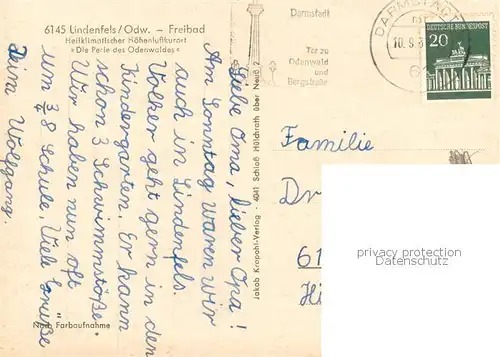 6145 Lindenfels/Odw. – Freibad
Heilklimatischer Höhenluftkurort
»Die Perle des Odenwaldes«
Liebe Oma, lieber Opa!
Am Sonntag waren wir
auch in Lindenfels.
Volker geht gern in den
Kindergarten. Er kann
schon 3 Schwimmstöße.
Wir haben nun oft
um ¾ 8 Schule. Viele Grüße
Dein Wolfgang.
Nach Farbaufnahme
Jakob Krapohl-Verlag · 4041 Schloß Hülchrath über Neuß 2
Darmstadt
Tor zu
Odenwald
und
Bergstraße
DARMSTADT
10.9.6
20
Familie
Dr
61
privacy protection
Datenschutz